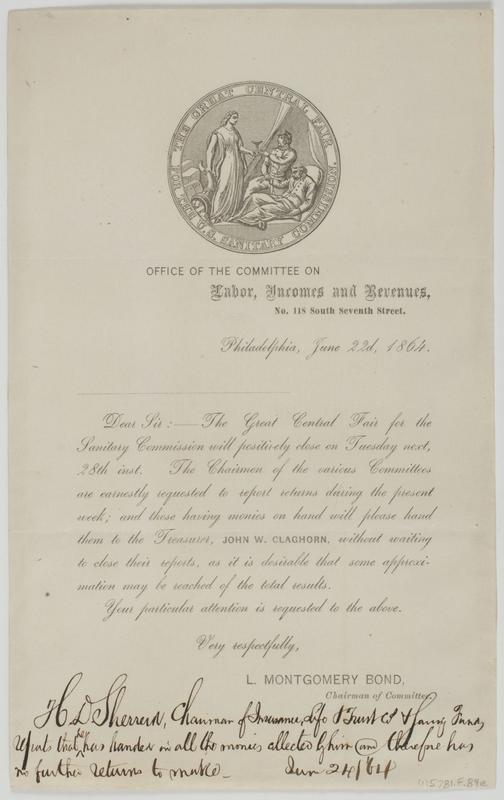 THE GREAT CENTRAL FAIR
FOR THE U.S. SANITARY COMMISSION.
OFFICE OF THE COMMITTEE ON
Labor, Incomes and Revenues,
No. 118 South Seventh Street.
Philadelphia, June 22d, 1864.
Dear Sir:—The Great Central Fair for the
Sanitary Commission will positively close on Tuesday next,
28th inst. The Chairmen of the various Committees
are earnestly requested to report returns during the present
week; and those having monies on hand will please hand
them to the Treasurer, JOHN W. CLAGHORN, without waiting
to close their reports, as it is desirable that some approxi-
mation may be reached of the total results.
Your particular attention is requested to the above.
Very respectfully,
L. MONTGOMERY BOND,
Chairman of Committee.
H D Sherrerd, Chairman of Insurance, Life & Trust Co & Saving Funds
reports that he has handed in all the monies collected by him and therefore has
no further returns to make—
June 24/64